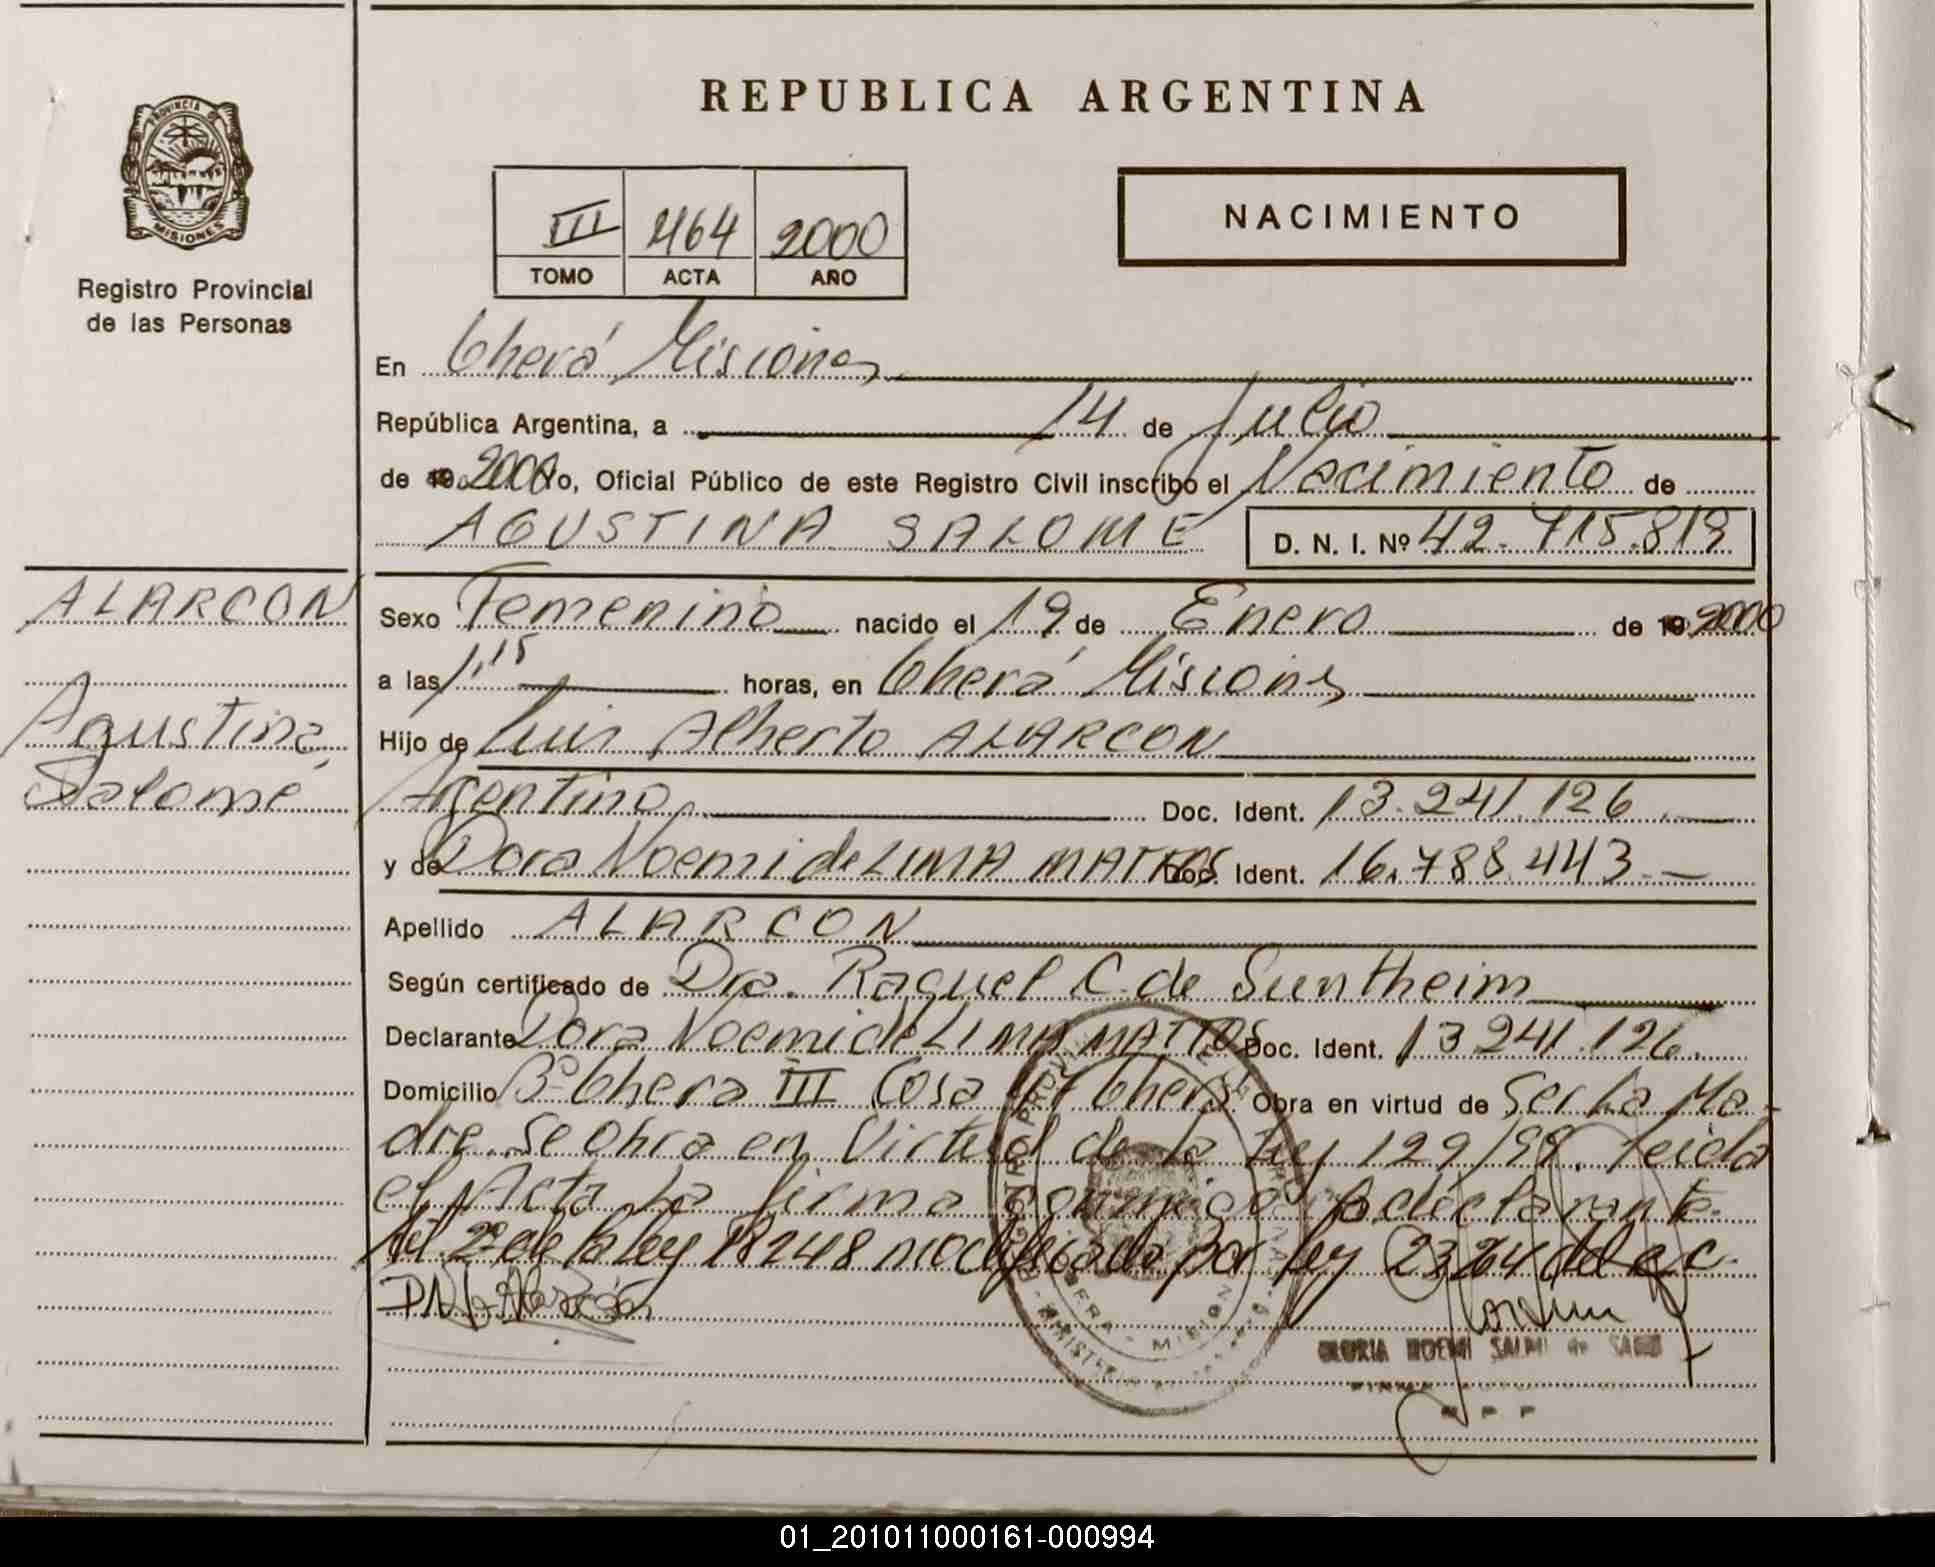 REPUBLICA ARGENTINA
PROVINCIA DE
MISIONES
Registro Provincial
de las Personas
III 464 2000
TOMO ACTA AÑO
NACIMIENTO
En Oberá Misiones
República Argentina, a 14 de Julio
de 19 2000 Yo, Oficial Público de este Registro Civil inscribo el Nacimiento de
AGUSTINA SALOME D. N. I. Nº 42.715.819
ALARCON
Agustina
Salomé
Sexo Femenino nacido el 19 de Enero de 19 2000
a las 1,15 horas, en Oberá Misiones
Hijo de Luis Alberto ALARCON
Argentino, Doc. Ident. 13.241.126
y de Dora Noemi de LIMA MATTOS Doc. Ident. 16.788.443
Apellido ALARCON
Según certificado de Dra. Raquel C. de Suntheim
Declarante Dora Noemi de LIMA MATTOS Doc. Ident. 13 241.126.
Domicilio Bº Obera III Casa Oberá. Obra en virtud de Ser La Ma-
dre. Se Obra en Virtud de la Ley 129/99. Leida
el Acta La firma conmigo la declarante.
2º de la ley 18248 modificada por ley 23264 del C.C.
GLORIA NOEMI
01_201011000161-000994